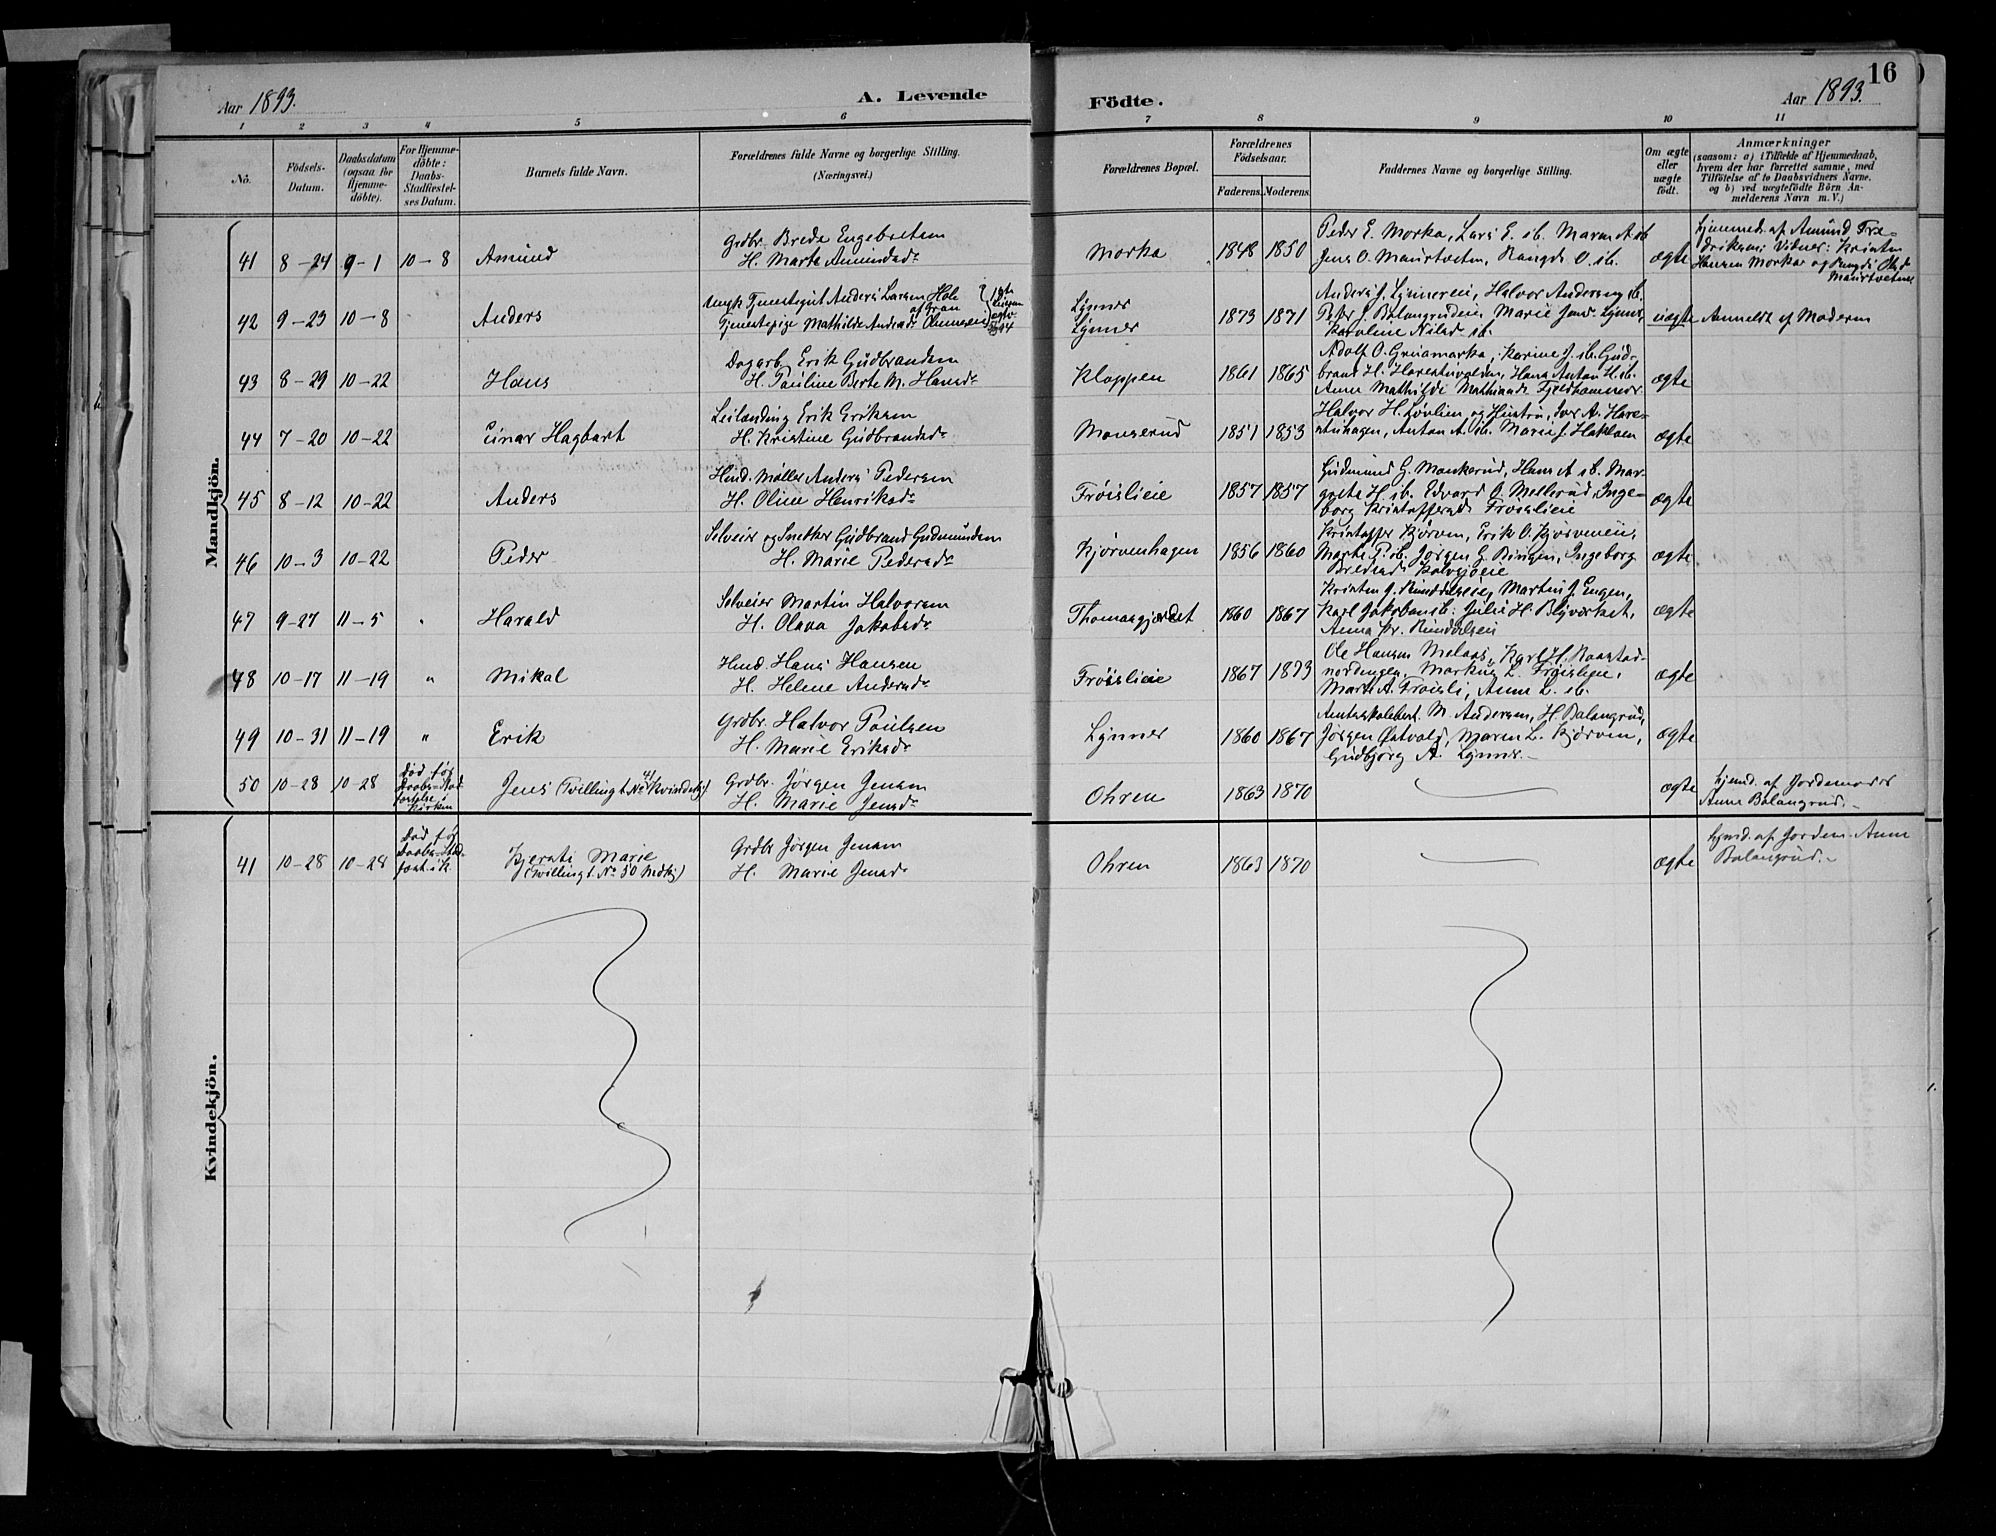 Aar 1893.
A. Levende
Födte.
Aar 1893.
16
1 2 3 4 5 6 7 8 9 10 11
No.
Födsels-
Datum.
Daabsdatum
(ogsaa for
Hjemme-
döbte).
For Hjemme-
döbte:
Daabs-
Stadfæstel-
ses Datum.
Barnets fulde Navn.
Forældrenes fulde Navne og borgerlige Stilling.
(Næringsvei.)
Forældrenes Bopæl.
Forældrenes
Födselsaar.
Faderens. Moderens.
Faddernes Navne og borgerlige Stilling.
Om ægte
eller
uægte
födt.
Anmærkninger
(saasom: a) i Tilfælde af Hjemmedaab,
hvem der har forrettet samme, med
Tilföielse af to Daabsvidners Navne.
og b) ved uægtefödte Börn An-
melderens Navn m. V.)
Mandkjön.
41 8-24 9-1 10-8 Amund
Grdbr. Brede Engebretsen
H. Marte Amundsdr
Morka 1848 1850
Peder E. Morka, Lars E. ib. Maren A. ib
Jens O. Maurtvetm, Rangdi O. ib.
ægte
Hjemmed. af Amund Fre-
driksen; Vidner: Kristen
Hansen Morka og Rangdi Olsd
Maurtvetm
42 9-23 10-8 Anders
Ungk. Tjenestegut Anders Larsen Hole
af Gran
Tjenestepige Mathilde Andersdr
Lynner
Lynner
1873 1871
Anders J. Lynnereie, Halvor Andersen ib.
Peter J. Balangrudeie, Marie Jensd. Lynner,
Karoline Nilsd ib.
uægte Anmeldt af Moderen
43 8-29 10-22 Hans
Dagarb. Erik Gudbrandsen
H. Pauline Berte M. Hansdr
Kloppen 1861 1865
Adolf O. Gruamarka, Karine J. ib. Gud-
brand H. Harestuvolden, Hans Anton H. ib.
Anna Mathilde Mathisasdr Fjeldhammer
ægte
44 7-20 10-22 Einar Hagbart
Leilænding Erik Eriksen
H. Kristine Gudbrandsdr
Monserud 1851 1853
Halvor H. Løvlien og Hustru, Iver A. Hare-
stuhagen, Anton A. ib. Marie J. Hakloen
ægte
45 8-12 10-22 Anders
Husm. Møller Anders Pedersen
H. Oline Henriksdr
Frøislieie 1857 1857
Gudmund G. Monkerud, Hans A ib. Mar-
grete H. ib. Edvard O. Mellerud, Inge-
borg Kristoffersdr Frøislieie
ægte
46 10-3 10-22 Peder
Selveier og Snekker Gudbrand Gudmundsen
H. Marie Pedersdr
Kjørvenhagen 1856 1860
Kristoffer Kjørven, Erik O. Kjørveneie,
Marte P. ib. Jørgen G. Bingen, Ingeborg
Bredesdr Kalvsjøeie
ægte
47 9-27 11-5 " Harald
Selveier Martin Halvorsen
H. Olava Jakobsdr
Thomasgjerdet 1860 1867
Kristen J. Rundelseie, Martin J. Engen,
Karl Jakobsen ib: Julie H. Blyverket,
Anna Kr. Rundelseie
ægte
48 10-17 11-19 " Mikal
Husm. Hans Hansen
H. Helene Andersdr
Frøislieie 1867 1873
Ole Hansen Melaas, Karl H. Raastad-
nordengen, Markus L. Frøislieie,
Marte A. Frøisli, Anne L. ib.
ægte
49 10-31 11-19 " Erik
Grdbr. Halvor Paulsen
H. Marie Eriksdr
Lynner 1860 1867
Amtsskolebest. M. Andersen, H. Balangrud,
Jørgen Østvold, Maren L. Kjørven,
Gudbjørg A. Lynner.
ægte
50 10-28 10-28
Død før
Daabs-Stad-
fæstelse i
Kirken
Jens (Tvilling t. No 41 Kvindekj)
Grdbr. Jørgen Jensen
H. Marie Jensdr
Ohren 1863 1870 ægte
Hjemd. af Jordemoder
Anne Balangrud.
Kvindekjön.
41 10-28 10-28
Død før
Daabs-Stad-
fæst. i K.
Kjersti Marie
(Tvilling t. No 50 Mdkj)
Grdbr Jørgen Jensen
H. Marie Jensdr
Ohren 1863 1870 ægte
Hjemd. af Jordem. Anne
Balangrud.